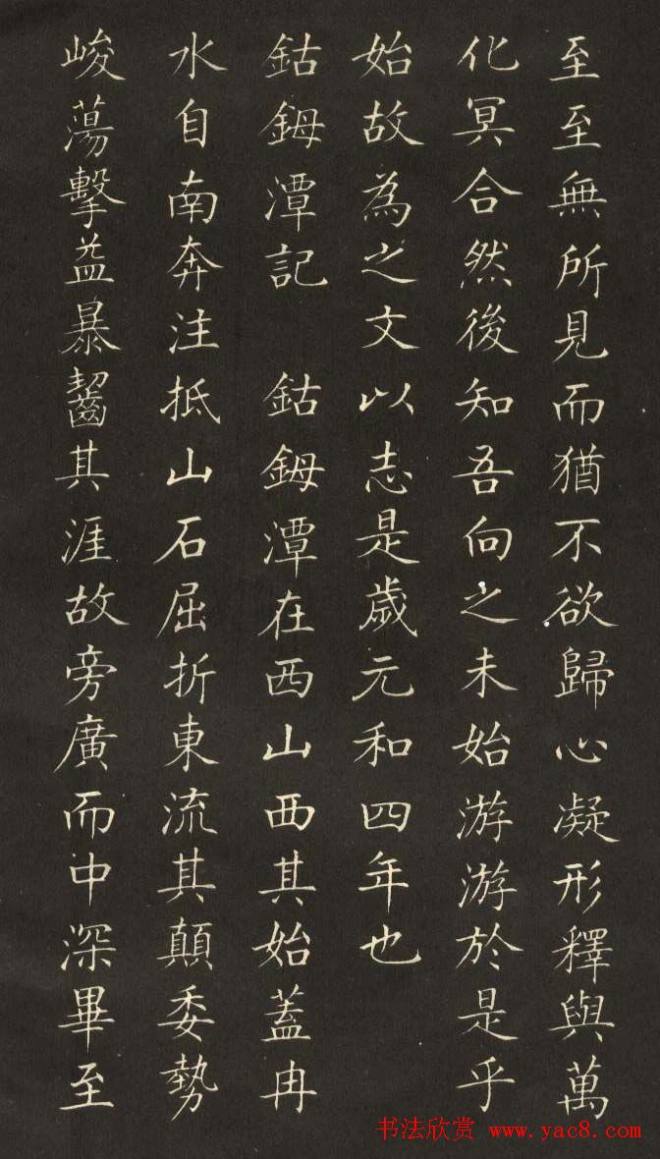 至至無所見而猶不欲歸心凝形釋與萬
化冥合然後知吾向之未始游游於是乎
始故為之文以志是歲元和四年也
鈷鉧潭記　鈷鉧潭在西山西其始蓋冉
水自南奔注抵山石屈折東流其顛委勢
峻蕩擊益暴齧其涯故旁廣而中深畢至
书法欣赏 www.yac8.com